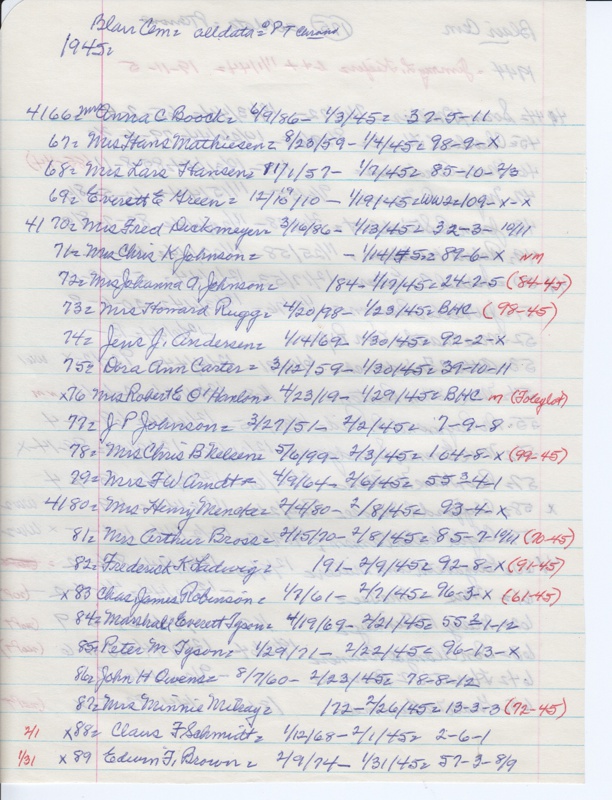 Blair Cem= all data= PT
1945=
4166= Mrs Anna C Boock= 6/9/86- 1/3/45= 37-5-11
67= Mrs Hans Mathiesen= 8/23/59- 1/4/45= 98-9-X
68= Mrs Lars Hansen= 11/1/57- 1/7/45= 85-10-2/3
69= Everett E Green= 12/16/10- 1/19/45= WW2=109-X-X
4170= Mrs Fred Dickmeyer= 3/16/86- 1/13/45= 32-3-10/11
71= Mrs Chris K Johnson= - 1/14/45= 87-6-X NM
72= Mrs Johanna A Johnson= 184- 1/17/45= 24-2-5 (84-45)
73= Mrs Howard Rugg= 4/20/98- 1/23/45= BHC (98-45)
74= Jens J. Andersen= 4/14/69- 1/30/45= 92-2-X
75= Dora Ann Carter= 3/12/59- 1/30/45= 39-10-11
X76 Mrs Robert E O'Hanlon= 4/23/19- 1/29/45= BHC m
77= J-P Johnson= 3/27/51- 2/2/45= 7-9-8
78= Mrs Chris B Nelsen= 5/6/99- 2/3/45= 164-8-X (99-45)
79= Mrs F W Arndt= 4/9/64- 2/6/45= 55 3-4-1
4180= Mrs Henry Mencke= 2/4/80- 2/8/45= 93-4-X
81= Mrs Arthur Bross= 2/15/70- 2/8/45= 85-7-10/11 (70-45)
82= Frederick K Ludwig= 191- 2/9/45= 92-8-X (91-45)
X83 Chas James Robinson= 1/7/61- 2/7/45= 96-3-X (61-45)
84= Marshall Everett Tyson= 4/19/69- 2/21/45= 55 2-1-12
85= Peter M Tyson= 1/29/71- 2/22/45= 96-13-X
86= John H Owens= 8/7/60- 2/23/45= 78-8-12
87= Mrs Minnie 172- 2/26/45= 13-3-3 (72-45)
2/1 X88= Claus F Schmitt= 1/12/68- 2/1/45= 2-6-1
1/31 X89 Edwin F. Brown= 2/9/74- 1/31/45= 57-3-8/9